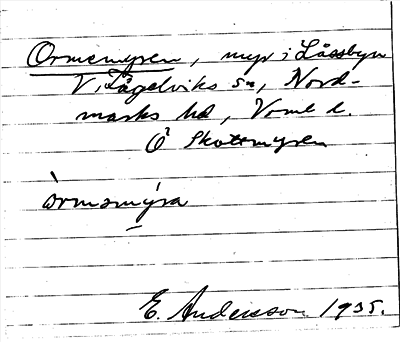 Ormemyren, myr i Låssbyn
V. Fågelviks sn, Nord-
marks hd, Vrml l.
Ö Skatemyren
òrmemýra
E. Andersson 1935.